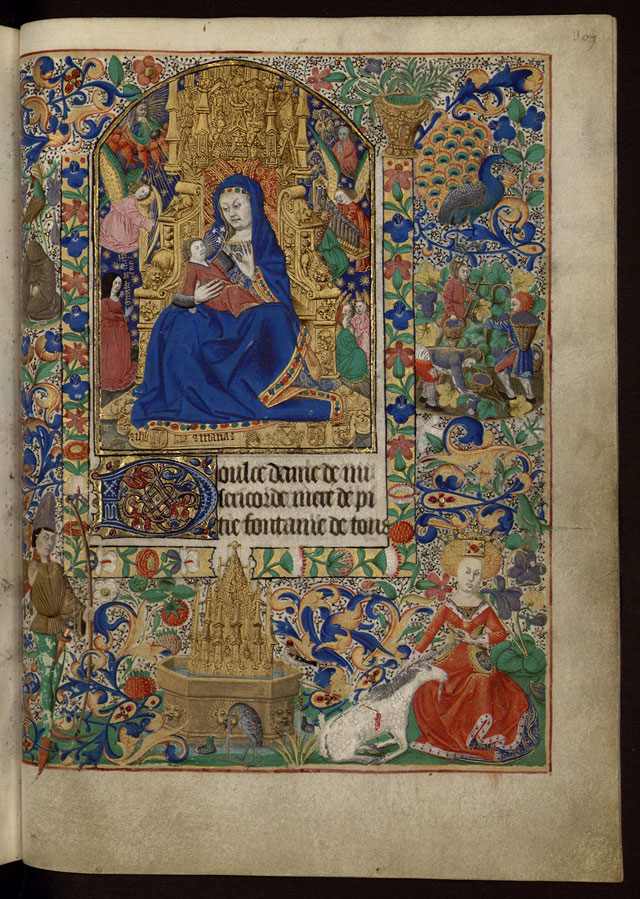 maria
Doulce dame de mi
sericorde mere de pi
tie fontaine de tous